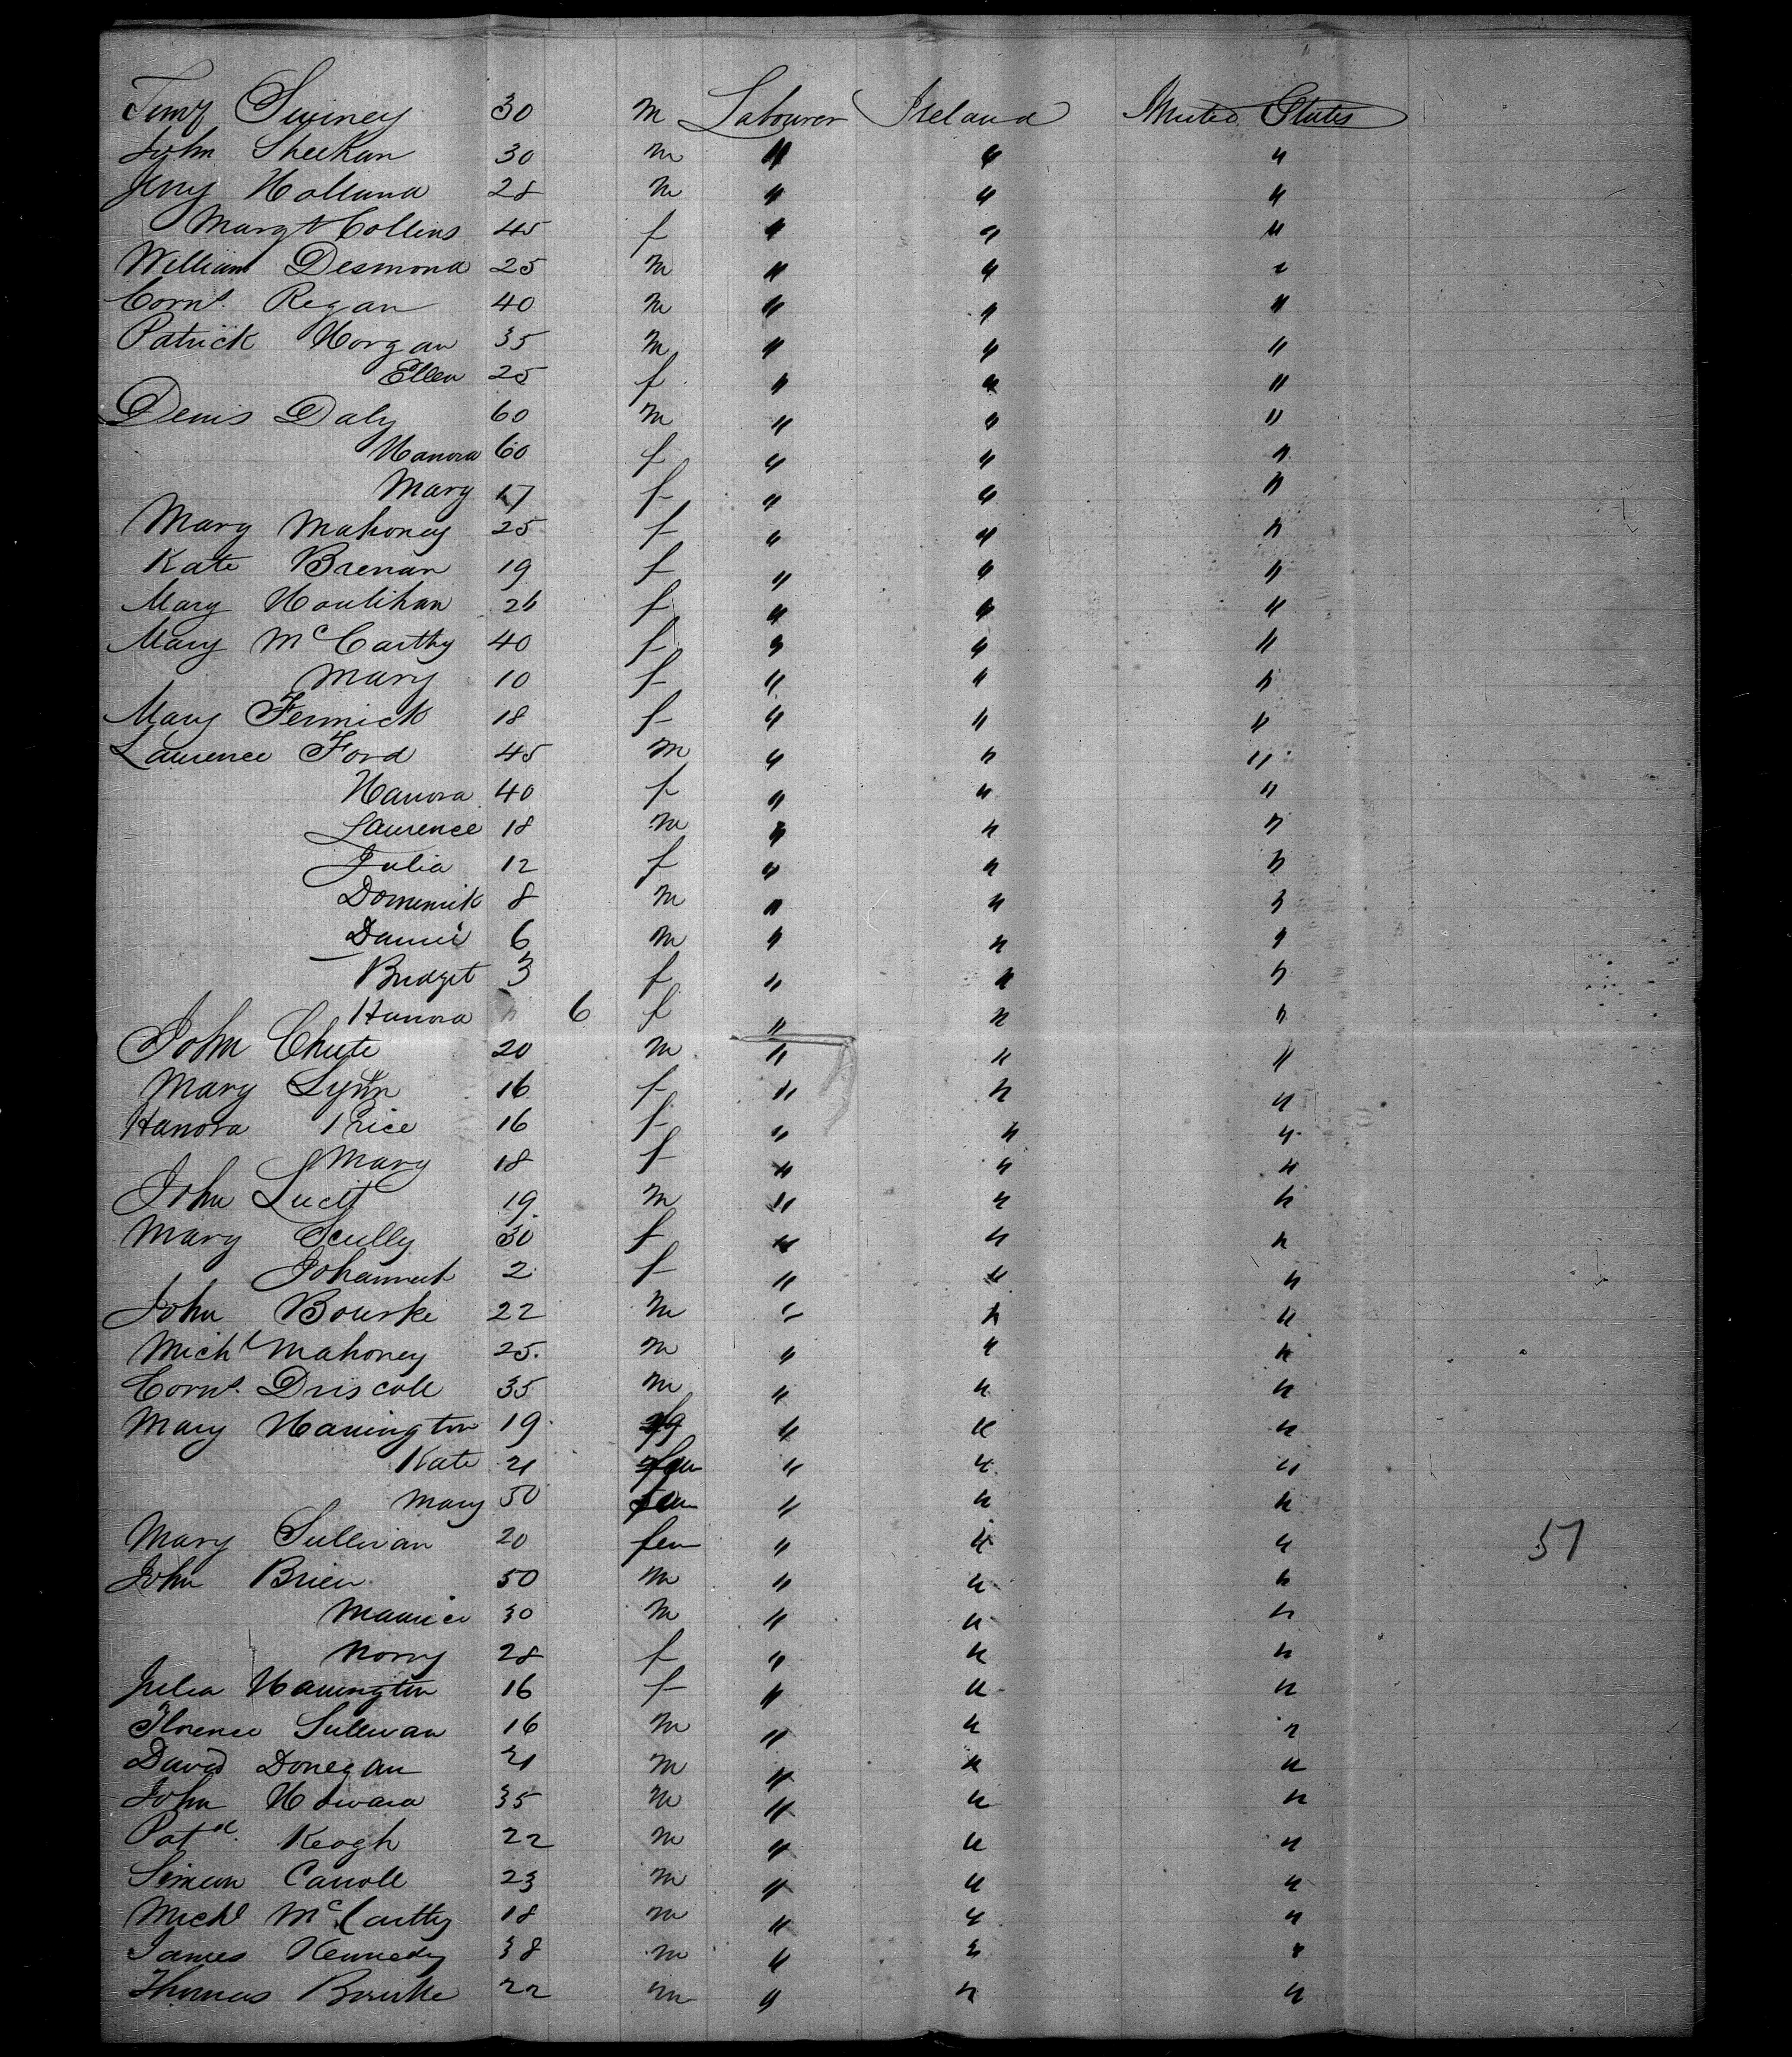 Timy Swiney 30 m Labourer Ireland United States
John Sheehan 30 m " " "
Jerry Holland 28 m " " "
Margt Collins 45 f " " "
William Desmond 25 m " " "
Corns. Regan 40 m " " "
Patrick Horgan 35 m " " "
Ellen 25 f " " "
Denis Daly 60 m " " "
Hanora 60 f " " "
Mary 17 f " " "
Mary Mahoney 25 f " " "
Kate Brenan 19 f " " "
Mary Houlihan 26 f " " "
Mary McCarthy 40 f " " "
Mary 10 f " " "
Mary Fennick 18 f " " "
Laurence Ford 45 m " " "
Hanora 40 f " " "
Laurence 18 m " " "
Julia 12 f " " "
Domenick 8 m " " "
Daniel 6 m " " "
Bridget 3 f " " "
Hanora 6 f " " "
John Chute 20 m " " "
Mary Lynn 16 f " " "
Hanora Price 16 f " " "
Mary 18 f " " "
John 19 m " " "
Mary Scully 30 f " " "
Johannah 2 f " " "
John Bourke 22 m " " "
Michl Mahoney 25 m " " "
Corns. Driscoll 35 m " " "
Mary Harrington 19 " " "
Kate 21 fem " " "
Mary 50 fem " " "
Mary Sullivan 20 fem " " " 57
John Brien 50 m " " "
Maurice 30 m " " "
Norry 28 f " " "
Julia Harrington 16 f " " "
Florence Sullivan 16 m " " "
David Donegan 21 m " " "
John Howard 35 m " " "
Patk. Keogh 22 m " " "
Simeon Carroll 23 m " " "
Michl McCarthy 18 m " " "
James Kennedy 38 m " " "
Thomas Bourke 22 m " " "